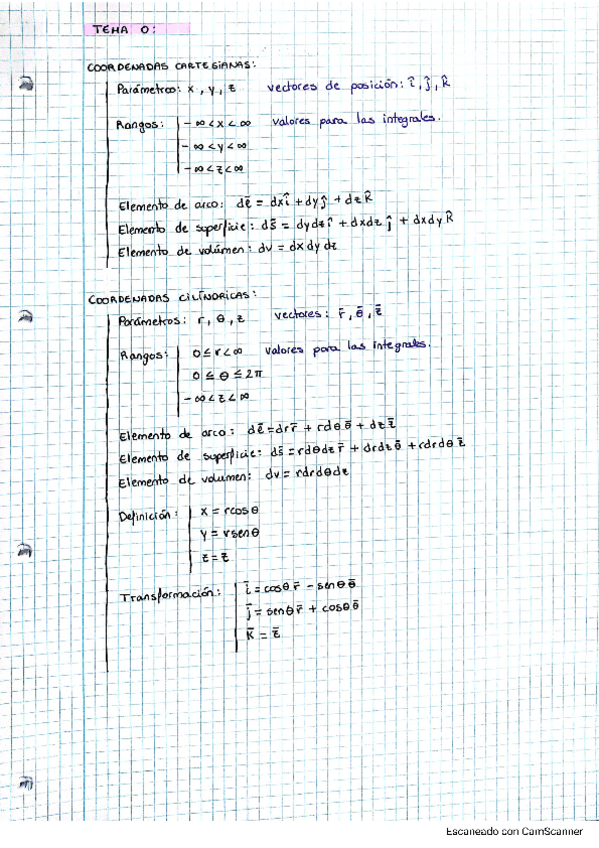 TEMA 0:
COORDENADAS CARTESIANAS:
Parámetros: x, y, z vectores de posición: î, ĵ, k̂
Rangos: -∞<x<∞ valores para las integrales.
-∞<y<∞
-∞<z<∞
Elemento de arco: dē = dxî + dyĵ + dzk̂
Elemento de superficie: ds̄ = dydzî + dxdzĵ + dxdyk̂
Elemento de volúmen: dv = dxdydz
COORDENADAS CILÍNDRICAS:
Parámetros: r, θ, z vectores: r̄, θ̄, z̄
Rangos: 0≤r<∞ valores para las integrales.
0≤θ≤2π
-∞<z<∞
Elemento de arco: dē = drr̄ + rdθθ̄ + dzz̄
Elemento de superficie: ds̄ = rdθdzr̄ + drdzθ̄ + rdrdθz̄
Elemento de volumen: dv = rdrdθdz
Definición: x = rcosθ
y = rsenθ
z = z
Transformación: ī = cosθr̄ - senθθ̄
j̄ = senθr̄ + cosθθ̄
k̄ = z̄
Escaneado con CamScanner